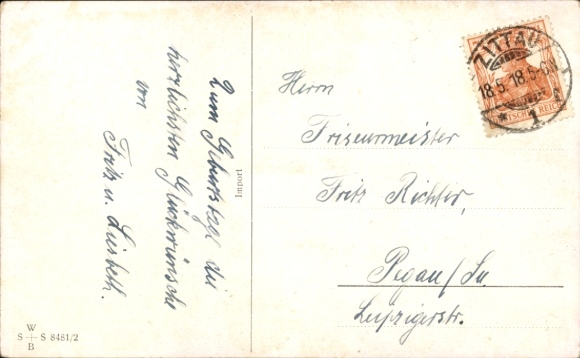 Zum Geburtstage die
herzlichsten Glückwünsche
von
Fritz u. Lisbeth.
Import
W
S S 8481/2
B
ZITTAU
18.5.18.5-6N
1
DEUTSCHES REICH
Herrn
Friseurmeister
Fritz Richter,
Pegau/Sa.
Leipzigerstr.